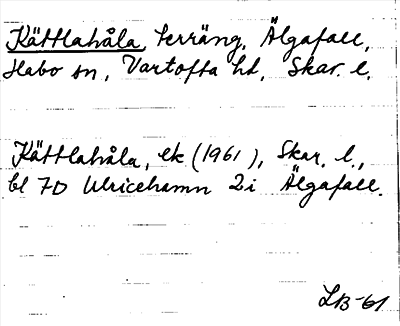 Kättlahåla, terräng, Älgafall,
Habo sn, Vartofta hd, Skar. l.
Kättlahåla, ek (1961), Skar. l.,
bl 7D Ulricehamn 2i Älgafall.
LB-61